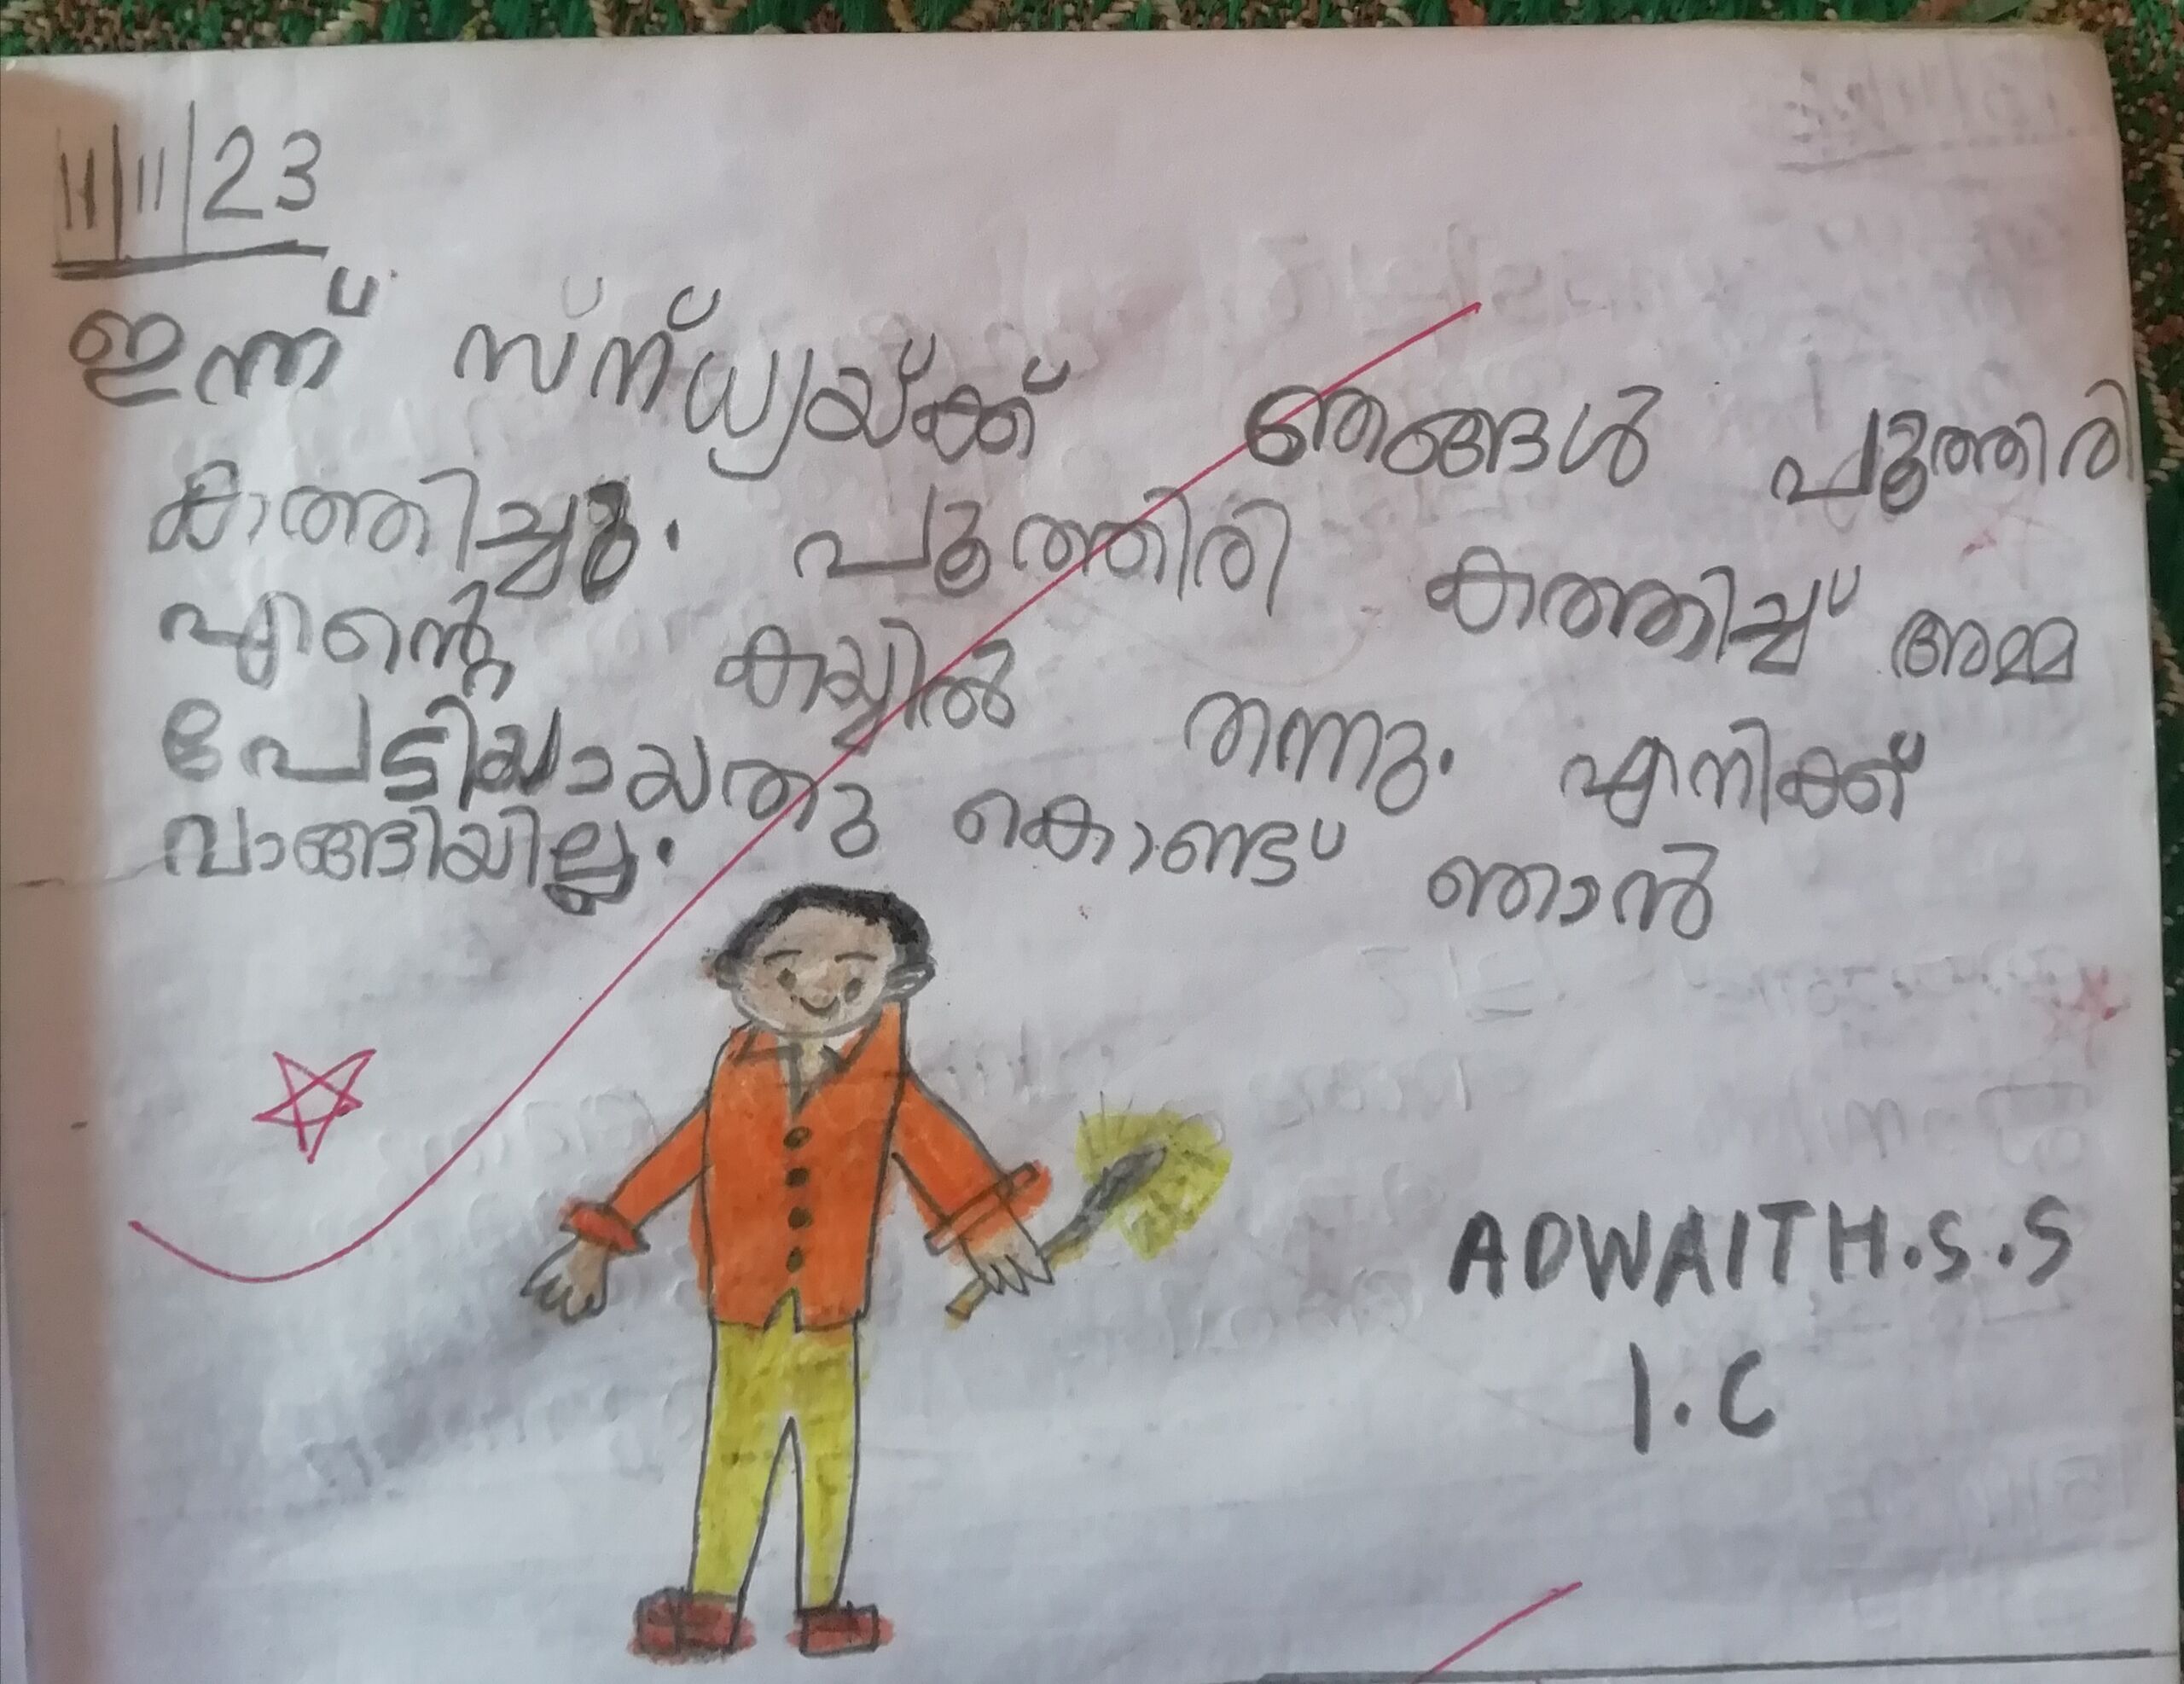 11/11/23
ഇന്ന് സ്ന്ധ്യയ്ക്ക് ഞങ്ങൾ പൂത്തിരി
കത്തിച്ചു. പൂത്തിരി കത്തിച്ച് അമ്മ
എന്റെ കയ്യിൽ തന്നു. എനിക്ക്
പേടിയായതു കൊണ്ട് ഞാൻ
വാങ്ങിയില്ല.
ADWAITH.S.S
1.C